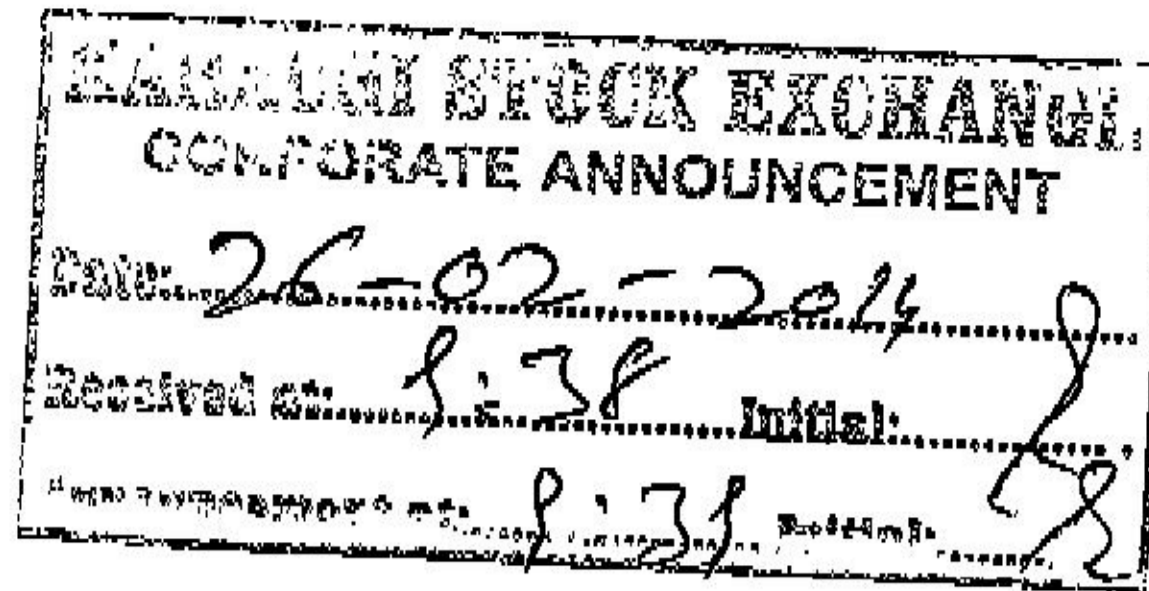 KARACHI STOCK EXCHANGE
CORPORATE ANNOUNCEMENT
Date: 26-02-2014
Received at: 9:38 Initial:
at: 9:39 Initial: